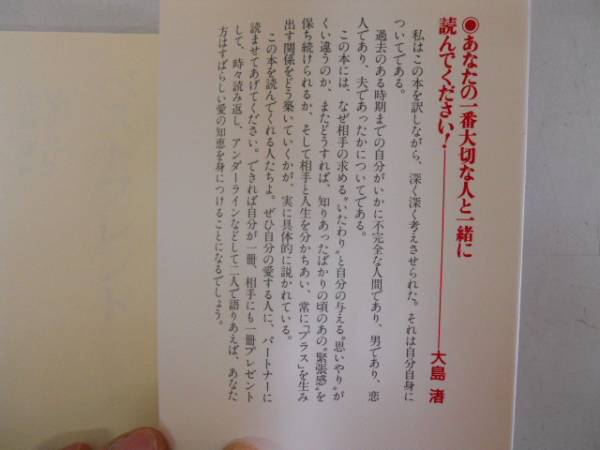 ◉あなたの一番大切な人と一緒に
読んでください！――大島 渚
私はこの本を訳しながら、深く深く考えさせられた。それは自分自身に
ついてである。
過去のある時期までの自分がいかに不完全な人間であり、男であり、恋
人であり、夫であったかについてである。
この本には、なぜ相手の求める〝いたわり〟と自分の与える〝思いやり〟が
くい違うのか、またどうすれば、知りあったばかりの頃のあの〝緊張感〟を
保ち続けられるか、そして相手と人生を分かちあい、常に「プラス」を生み
出す関係をどう築いていくかが、実に具体的に説かれている。
この本を読んでくれる人たちよ。ぜひ自分の愛する人に、パートナーに
読ませてあげてください。できれば自分が一冊、相手にも一冊プレゼント
して、時々読み返し、アンダーラインなどして二人で語りあえば、あなた
方はすばらしい愛の知恵を身につけることになるでしょう。